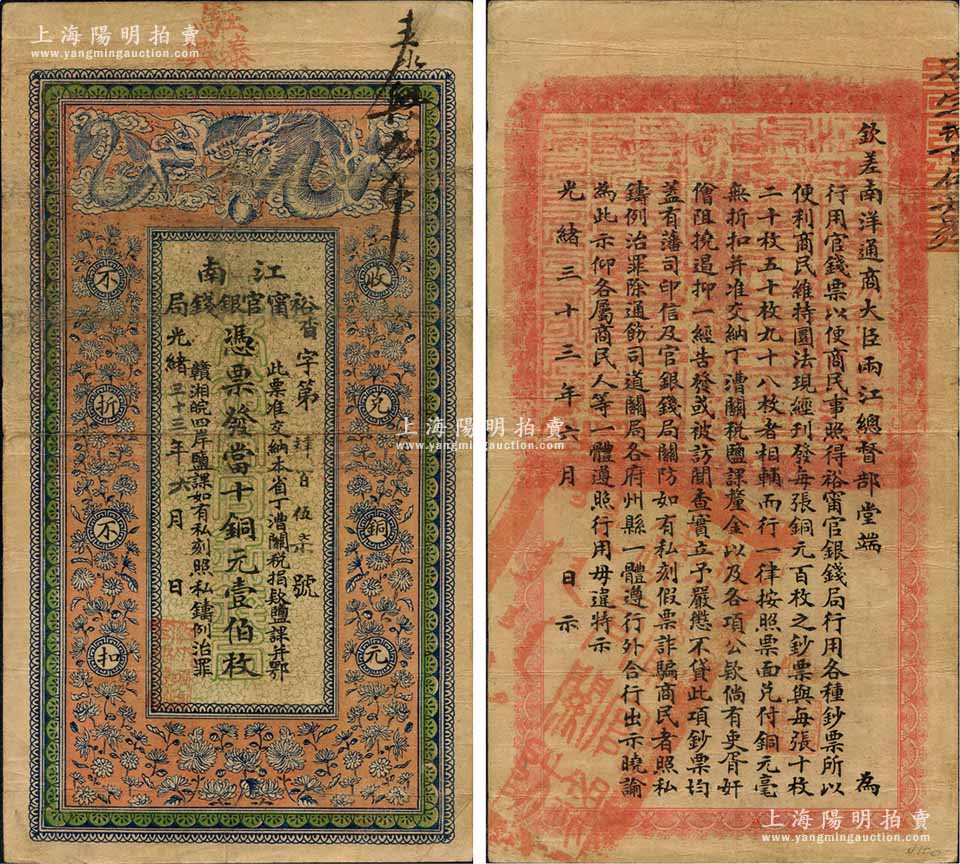 上海陽明拍賣
www.yangmingauction.com
江南
裕甯官銀錢局
字第肆百伍柒號
此票准交納本省丁漕關稅捐款鹽課并鄂
憑票發當十銅元壹佰枚
贛湘皖四岸鹽課如有私刻照私鑄例治罪
光緒三十三年六月日
收兌銅元
不折不扣
上海陽明拍賣
www.yangmingauction.com
上海陽明拍賣
www.yangmingauction.com
欽差南洋通商大臣兩江總督部堂端 為
行用官錢票以便商民事照得裕甯官銀錢局行用各種鈔票所以
便利商民維持圜法現經刊發每張銅元百枚之鈔票與每張十枚
二十枚五十枚九十八枚者相輔而行一律按照票面兌付銅元毫
無折扣并准交納丁漕關稅鹽課釐金以及各項公款倘有吏胥奸
儈阻撓遏抑一經告發或被訪聞查實立予嚴懲不貸此項鈔票均
蓋有藩司印信及官銀錢局關防如有私刻假票詐騙商民者照私
鑄例治罪除通飭司道關局各府州縣一體遵行外合行出示曉諭
為此示仰各屬商民人等一體遵照行用毋違特示
光緒三十三年六月 日示
上海陽明拍賣
www.yangmingauction.com
上海陽明拍賣
www.yangmingauction.com
上海陽明拍賣
www.yangmingauction.com